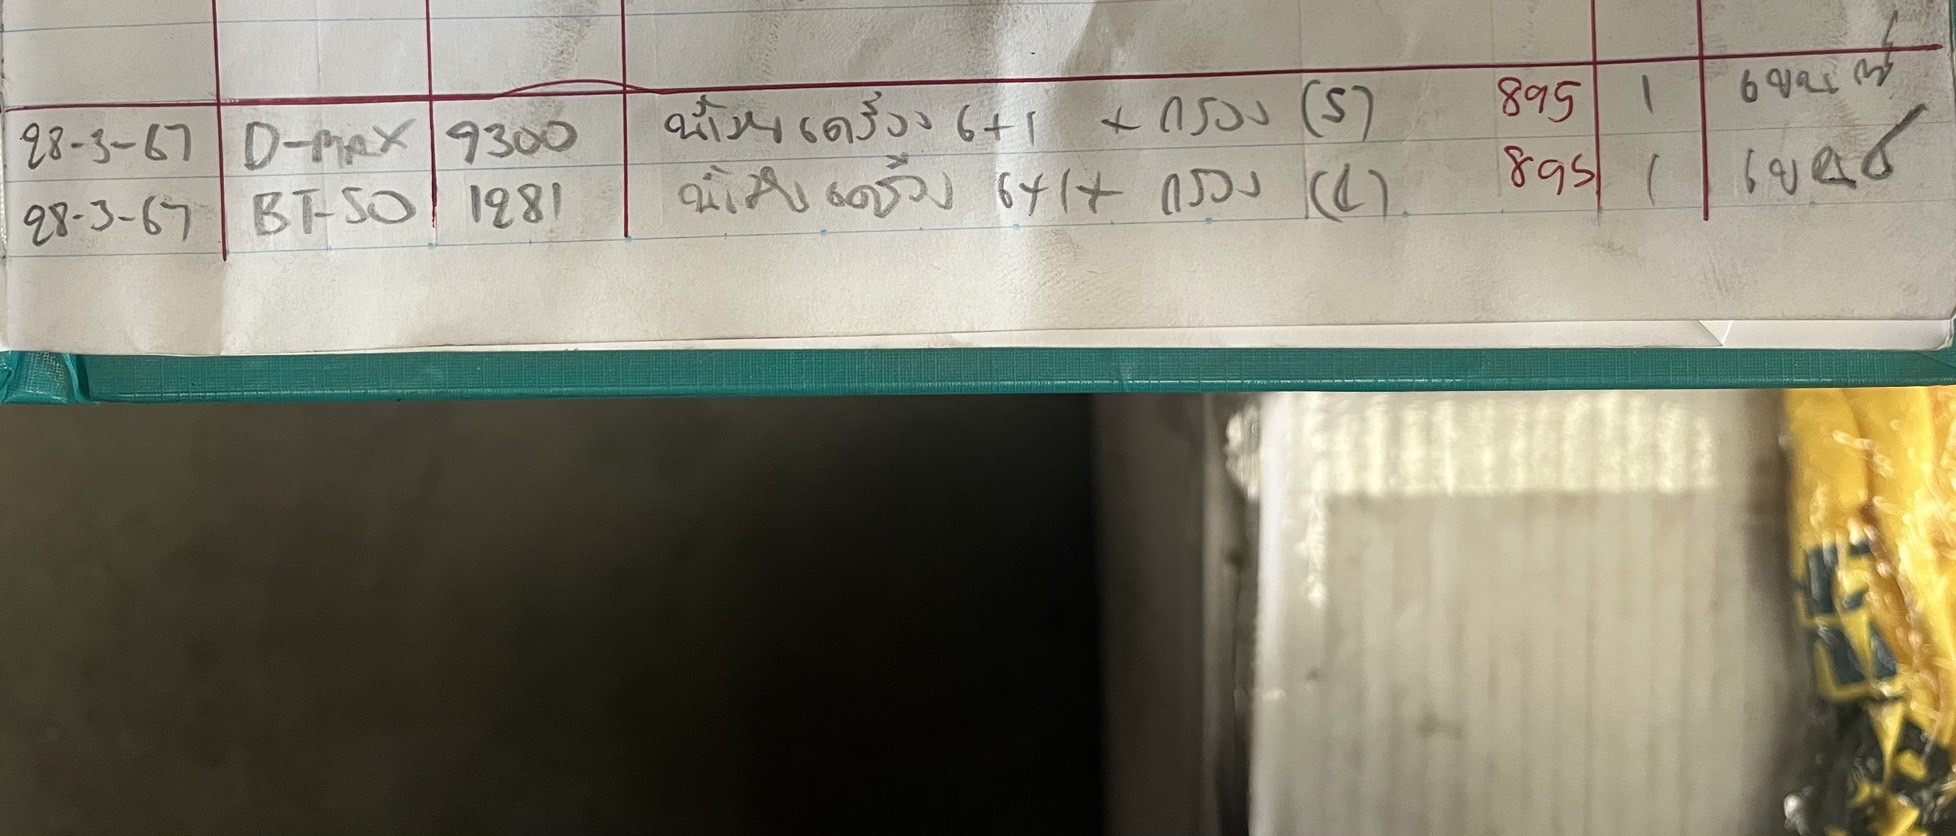 28-3-67 D-MAX 9300 น้ำมันเครื่อง 6+1 + กรอง (S) 895 1
28-3-67 BT-50 1281 น้ำมันเครื่อง 6+1+ กรอง (L) 895 1